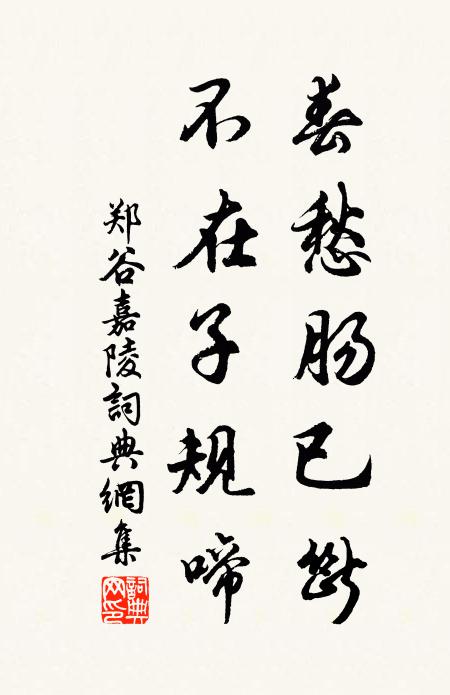 春愁肠已断
不在子规啼
郑谷嘉陵詞典網集
詞典网印